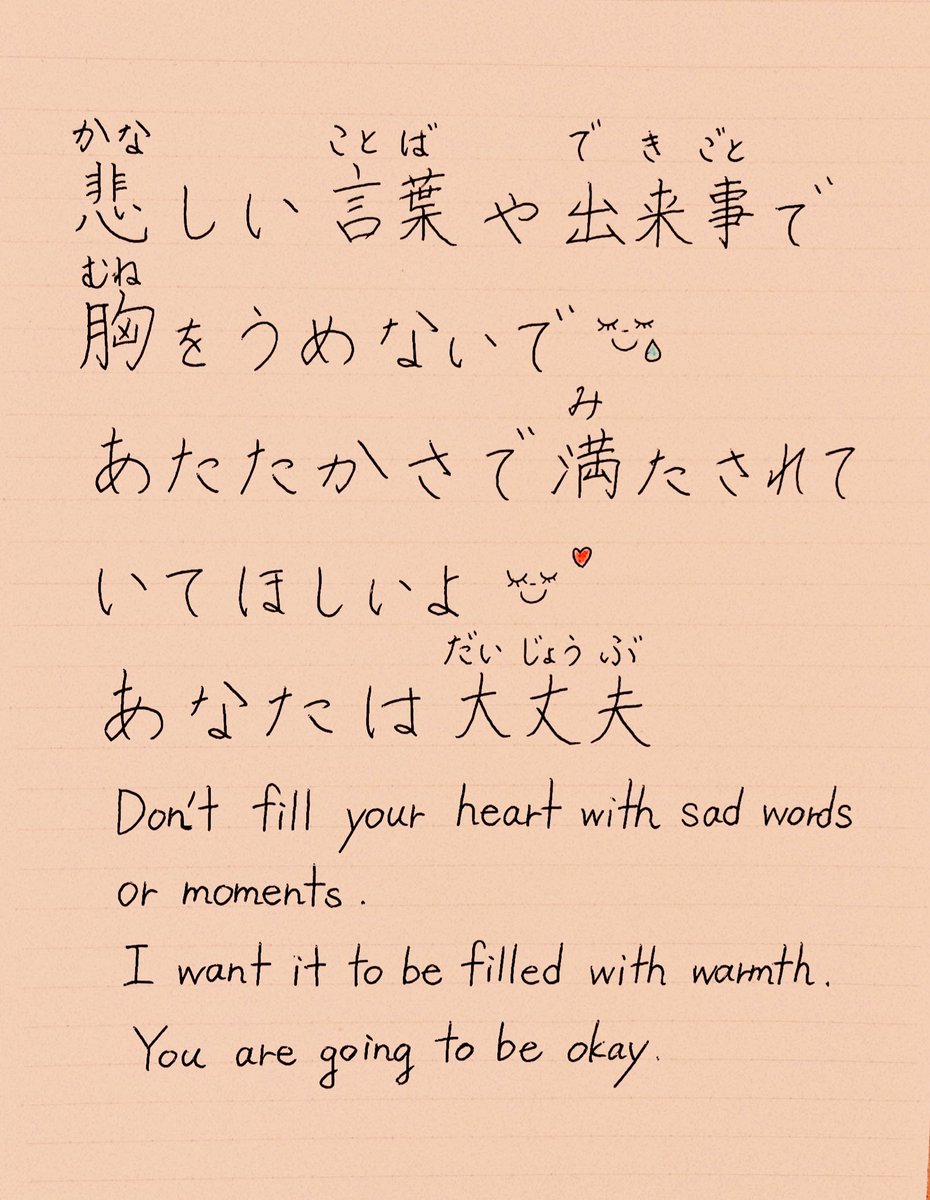 かな ことば できごと
悲しい言葉や出来事で
むね
胸をうめないで
み
あたたかさで満たされて
いてほしいよ
だいじょうぶ
あなたは大丈夫
Don't fill your heart with sad words
or moments.
I want it to be filled with warmth.
You are going to be okay.